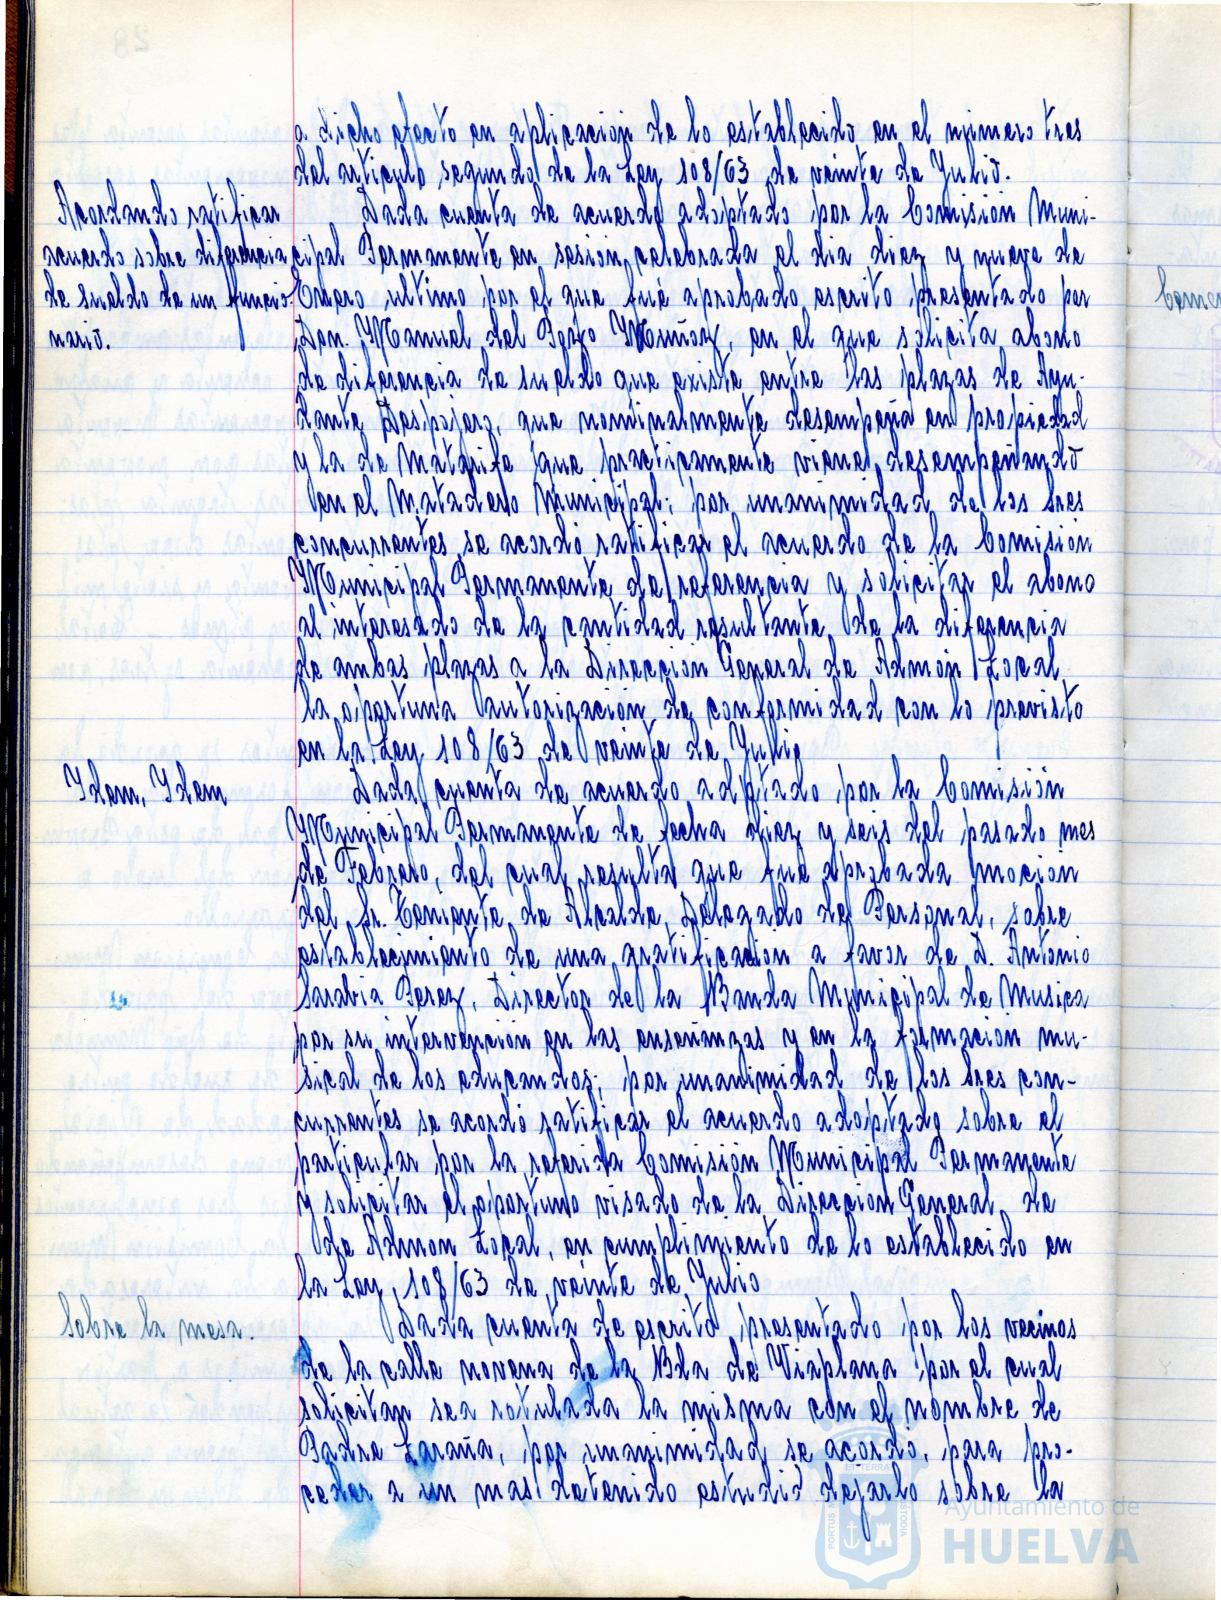 a dicho efecto en aplicación de lo establecido en el número tres
del artículo segundo de la Ley 108/63 de veinte de Julio.
Acordando ratificar
acuerdo sobre diferencia
de sueldo de un funcio-
nario.
Dada cuenta de acuerdo adoptado por la Comisión Muni-
cipal Permanente en sesión celebrada el dia diez y nueve de
Enero ultimo, por el que fué aprobado escrito presentado por
Don Manuel del Pozo Muñoz, en el que solicita abono
de diferencia de sueldo que existe entre las plazas de Ayu-
dante Despojero, que nominalmente desempeña en propiedad
y la de Matarife que practicamente viene desempeñando
en el Matadero Municipal; por unanimidad de los sres
concurrentes se acordó ratificar el acuerdo de la Comisión
Municipal Permanente de referencia y solicitar el abono
al interesado de la cantidad resultante de la diferencia
de ambas plazas a la Dirección General de Admón Local
la oportuna autorización de conformidad con lo previsto
en la Ley 108/63 de veinte de Julio
Idem, Idem
Dada cuenta de acuerdo adoptado por la Comisión
Municipal Permanente de fecha diez y seis del pasado mes
de Febrero, del cual resulta que fue aprobada moción
del Sr. Teniente de Alcalde, Delegado de Personal, sobre
establecimiento de una gratificación a favor de D. Antonio
Sarabia Perez, Director de la Banda Municipal de Musica
por su intervención en las enseñanzas y en la formación mu-
sical de los educandos; por unanimidad de los sres con-
currentes se acordó ratificar el acuerdo adoptado sobre el
particular por la referida Comisión Municipal Permanente
y solicitar el oportuno visado de la Direccion General de
de Admon Local, en cumplimiento de lo establecido en
la Ley 108/63 de veinte de Julio
Sobre la mesa.
Dada cuenta de escrito presentado por los vecinos
de la calle novena de la Bda de Viaplana por el cual
solicitan sea rotulada la misma con el nombre de
Padre Laraña, por unanimidad se acordó, para pro-
ceder a un mas detenido estudio dejarlo sobre la
Ayuntamiento de
HUELVA